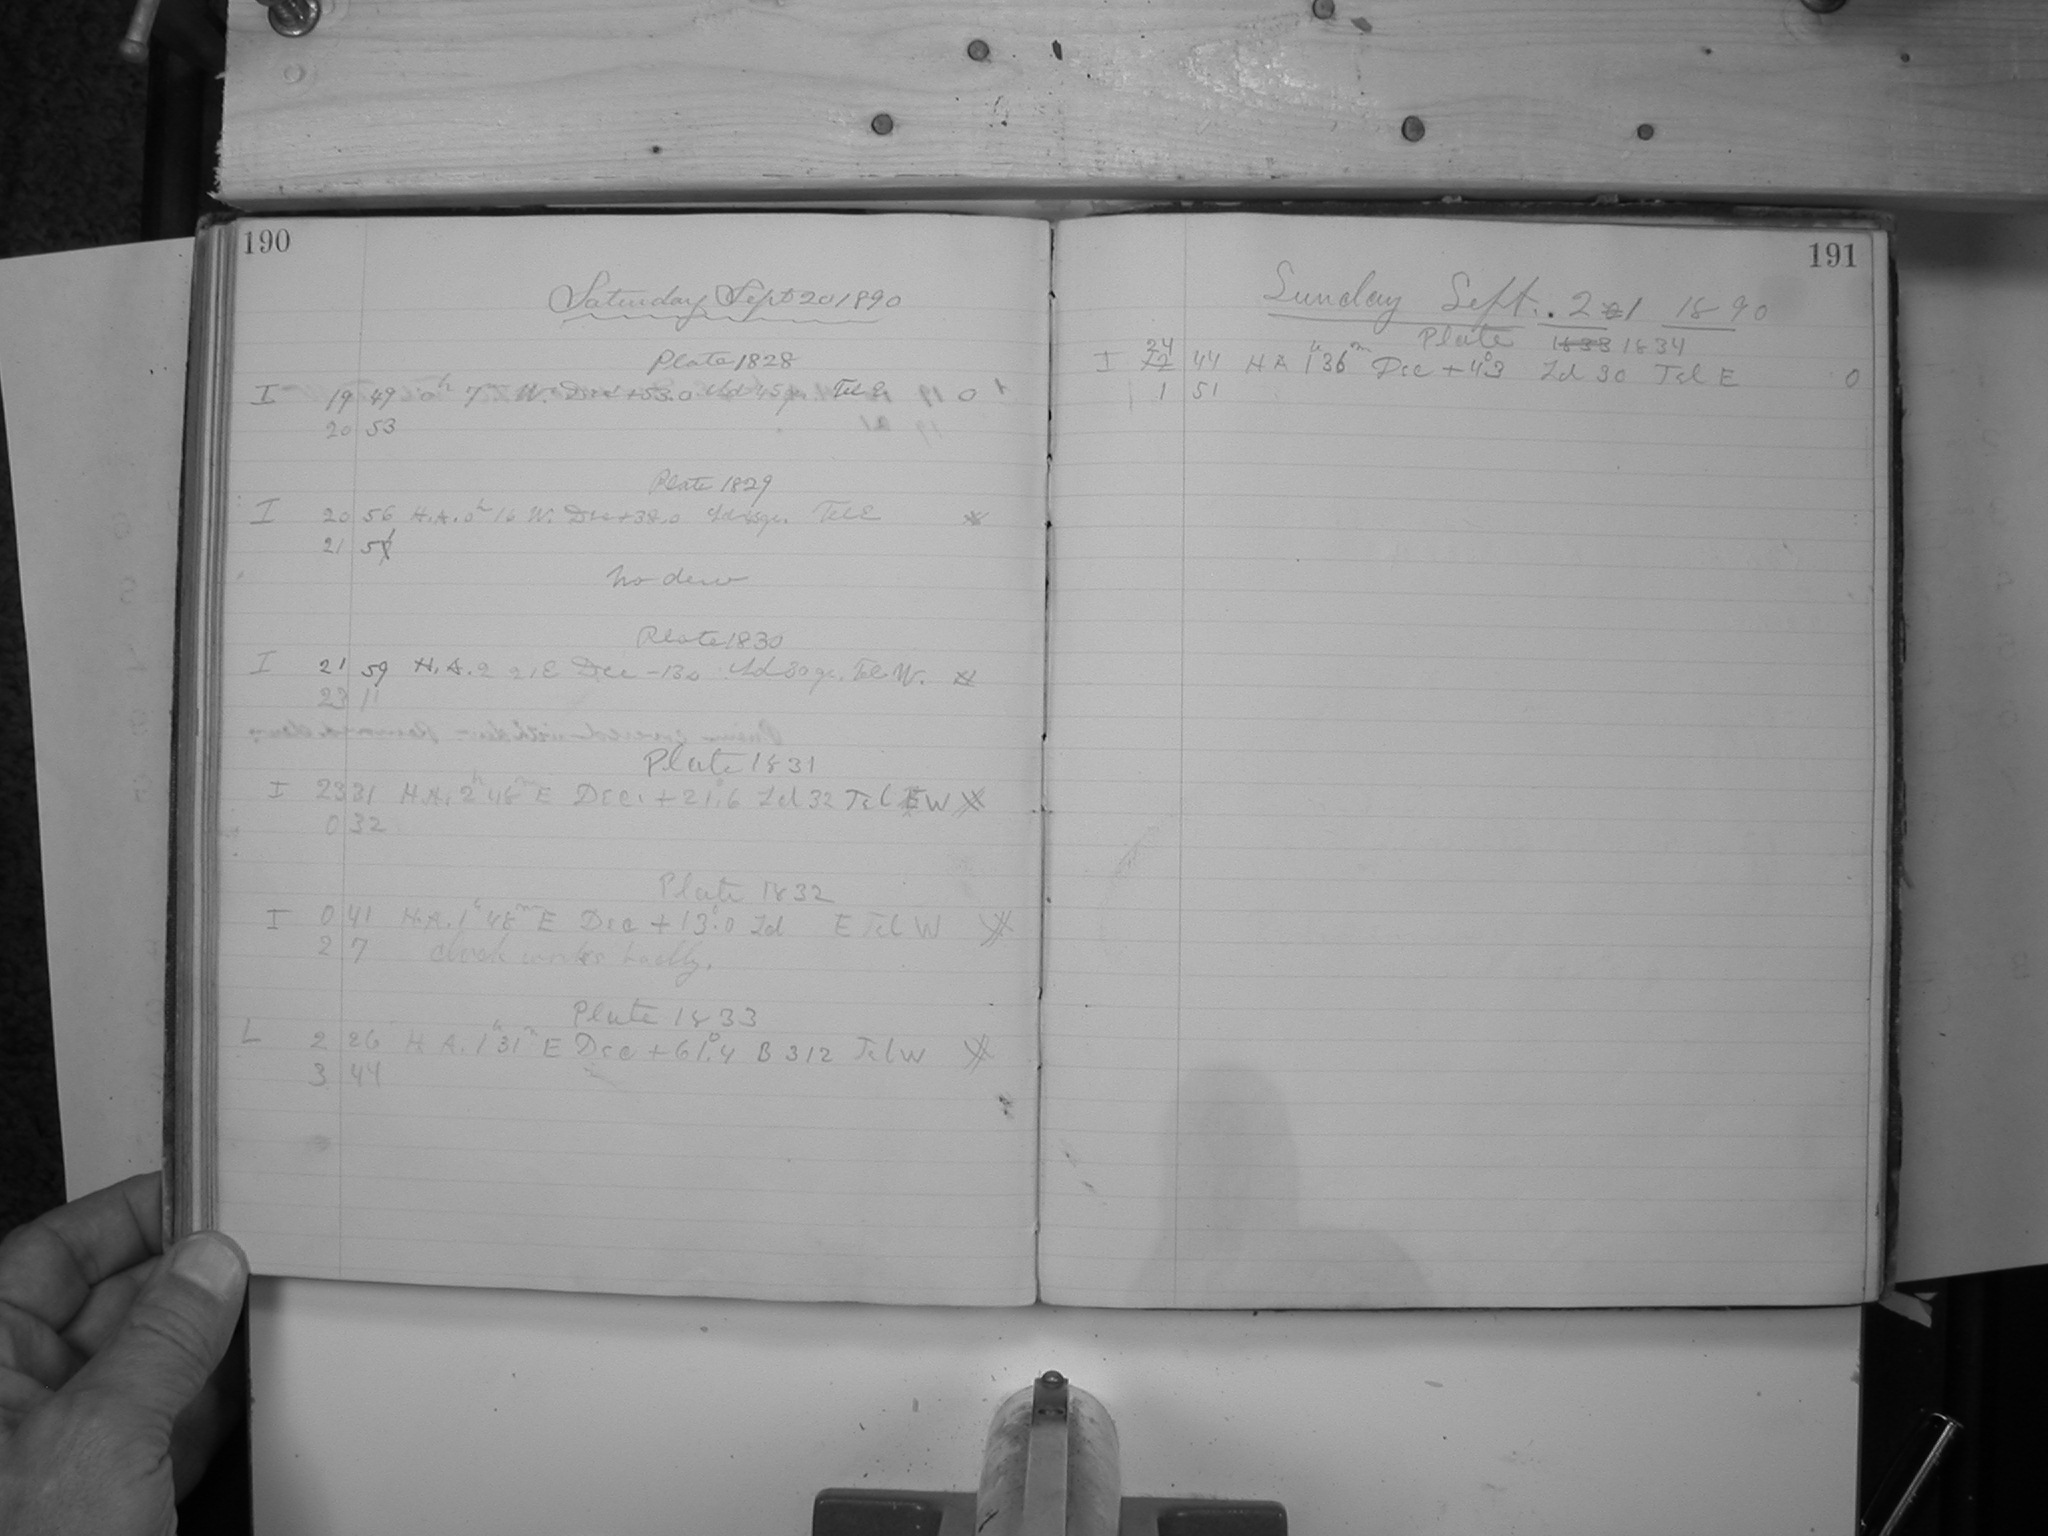 190
Saturday Sept 20 1890
Plate 1828
I 19 49 0h 7m W. Dec +53.0 Tel E 0
20 53
Plate 1829
I 20 56 H.A. 0h 16 W. Dec +38.0 Tel E
21 58
No dew
Plate 1830
I 21 59 H.A. 2 21 E Dec -13.0 Ld 30 ga. Tel W.
23 11
Plate 1831
I 23 31 H.A. 2h 48m E Dec. +21°.6 Ld 32 Tel W
0 32
Plate 1832
I 0 41 H.A. 1h 48m E Dec +13°.0 Ld E Tel W
2 7 clock works badly.
Plate 1833
L 2 26 H.A. 1h 31m E Dec +61°.4 B 312 Tel W
3 44
191
Sunday Sept. 21 1890
Plate 1833 1834
24
I 22 44 H A 1h 36m Dec +43° Ld 30 Tel E 0
1 51